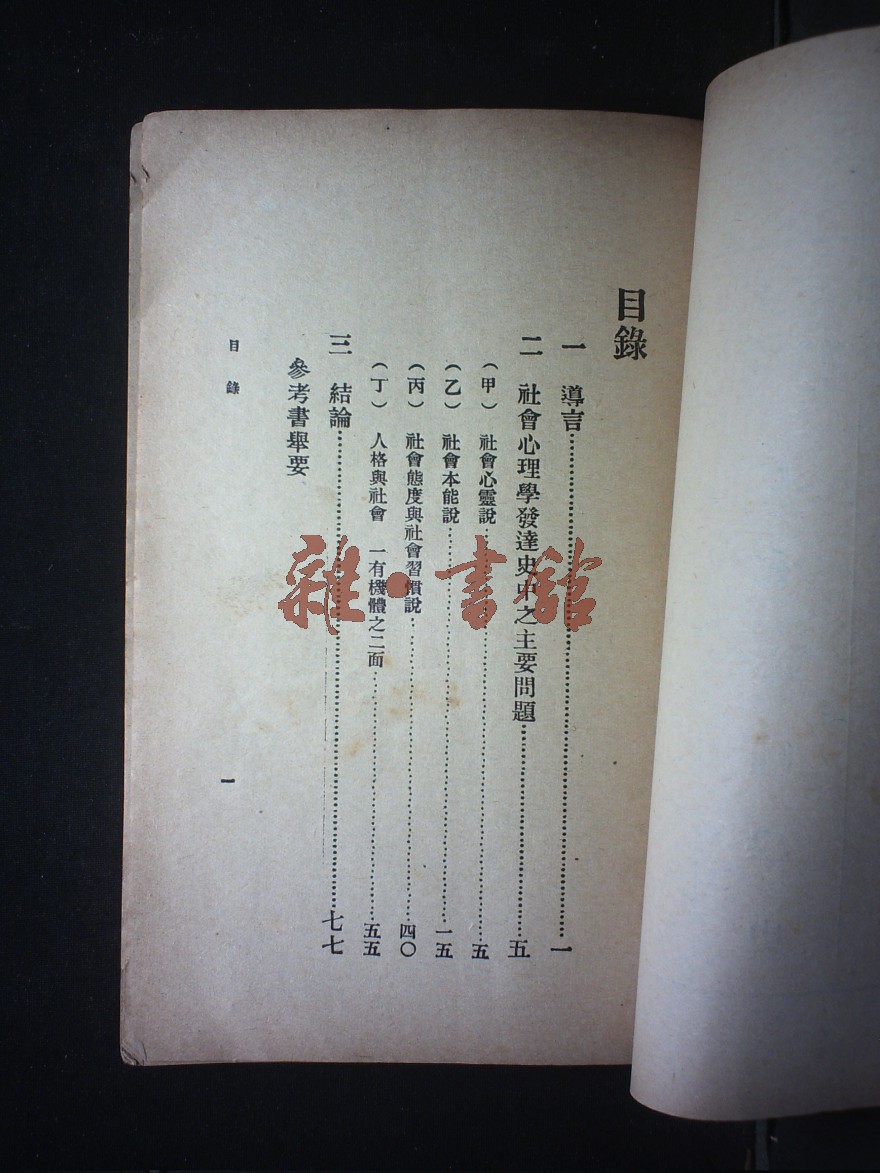 目錄
一　導言……一
二　社會心理學發達史中之主要問題……五
（甲）　社會心靈說……五
（乙）　社會本能說……一五
（丙）　社會態度與社會習慣說……四〇
（丁）　人格與社會　一有機體之二面……五五
三　結論……七七
參考書舉要
目錄
一
雜·書館